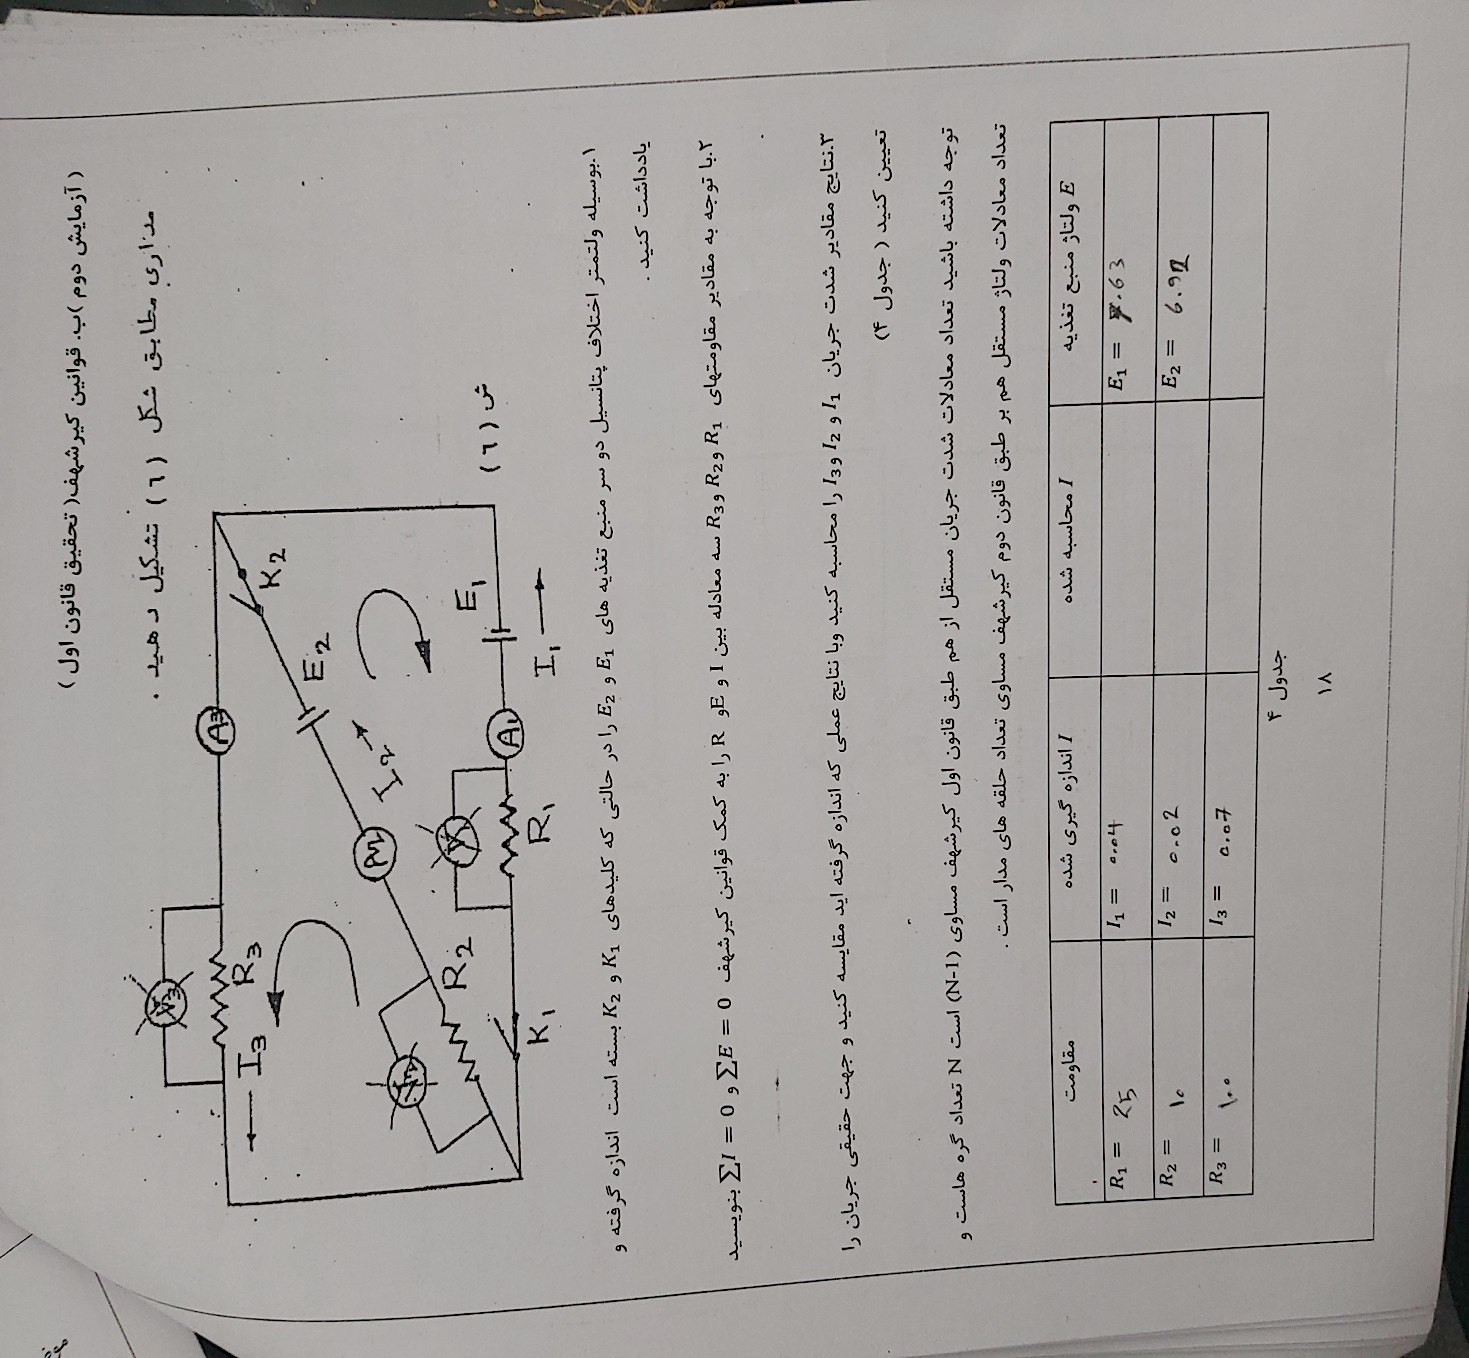 (آزمایش دوم)ب. قوانین کیرشهف(تحقیق قانون اول)
مداری مطابق شکل (٦) تشکیل دهید .
I3
V3
R3
A3
K2
E2
I2
A2
R2
V2
K1
R1
V1
A1
E1
I1
ش (٦)
۱.بوسیله ولتمتر اختلاف پتانسیل دو سر منبع تغذیه های E1 و E2 را در حالتی که کلیدهای K1 و K2 بسته است اندازه گرفته و
یادداشت کنید .
۲.با توجه به مقادیر مقاومتهای R1 وR2 وR3 سه معادله بین I و Eو R را به کمک قوانین کیرشهف ∑E = 0 و ∑I = 0 بنویسید
۳.نتایج مقادیر شدت جریان I1 و I2 وI3 را محاسبه کنید وبا نتایج عملی که اندازه گرفته اید مقایسه کنید و جهت حقیقی جریان را
تعیین کنید ( جدول ۴)
توجه داشته باشید تعداد معادلات شدت جریان مستقل از هم طبق قانون اول کیرشهف مساوی (N-1) است N تعداد گره هاست و
تعداد معادلات ولتاژ مستقل هم بر طبق قانون دوم کیرشهف مساوی تعداد حلقه های مدار است .
مقاومت I اندازه گیری شده I محاسبه شده E ولتاژ منبع تغذیه
R1 = 25 I1 = 0.04 E1 = 7.63
R2 = ۱۰ I2 = 0.02 E2 = 6.92
R3 = ۱۰۰ I3 = 0.07
جدول ۴
۱۸